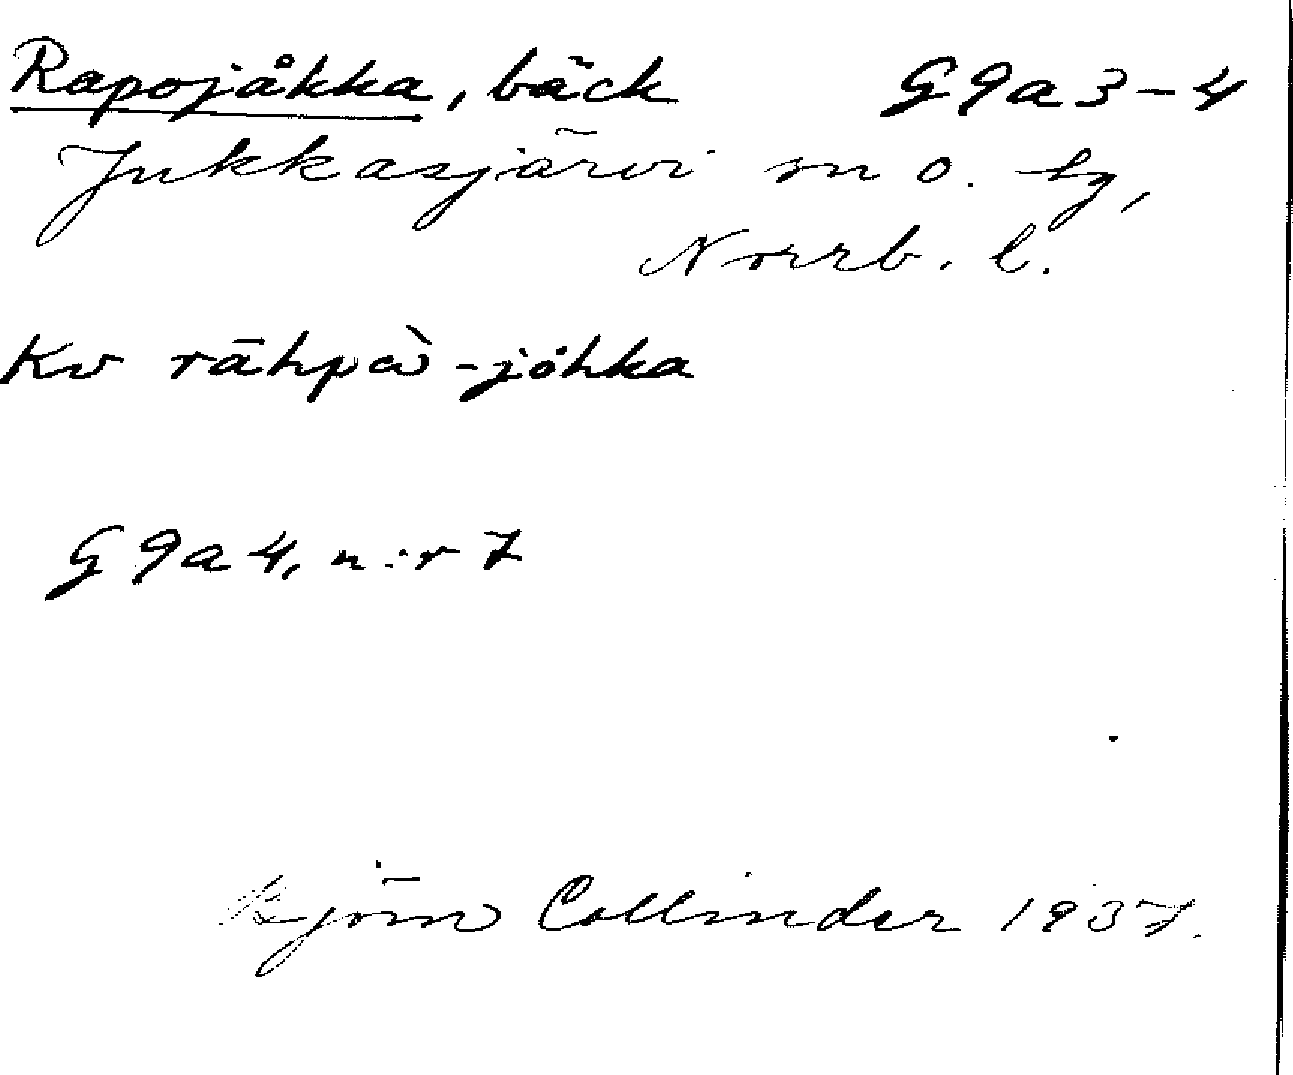 Rapojåkka, bäck G9a3-4
Jukkasjärvi sn o. tg,
Norrb. l.
Kv rāhpὰ-jȯhka
G9a4, n:r 7
Björn Collinder 1937.